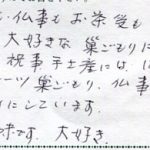 仏事も お茶受も
大好きな 巣ごもりに
祝事手土産には、
ーツ巣ごもり、仏事
にしています。
味です。大好き